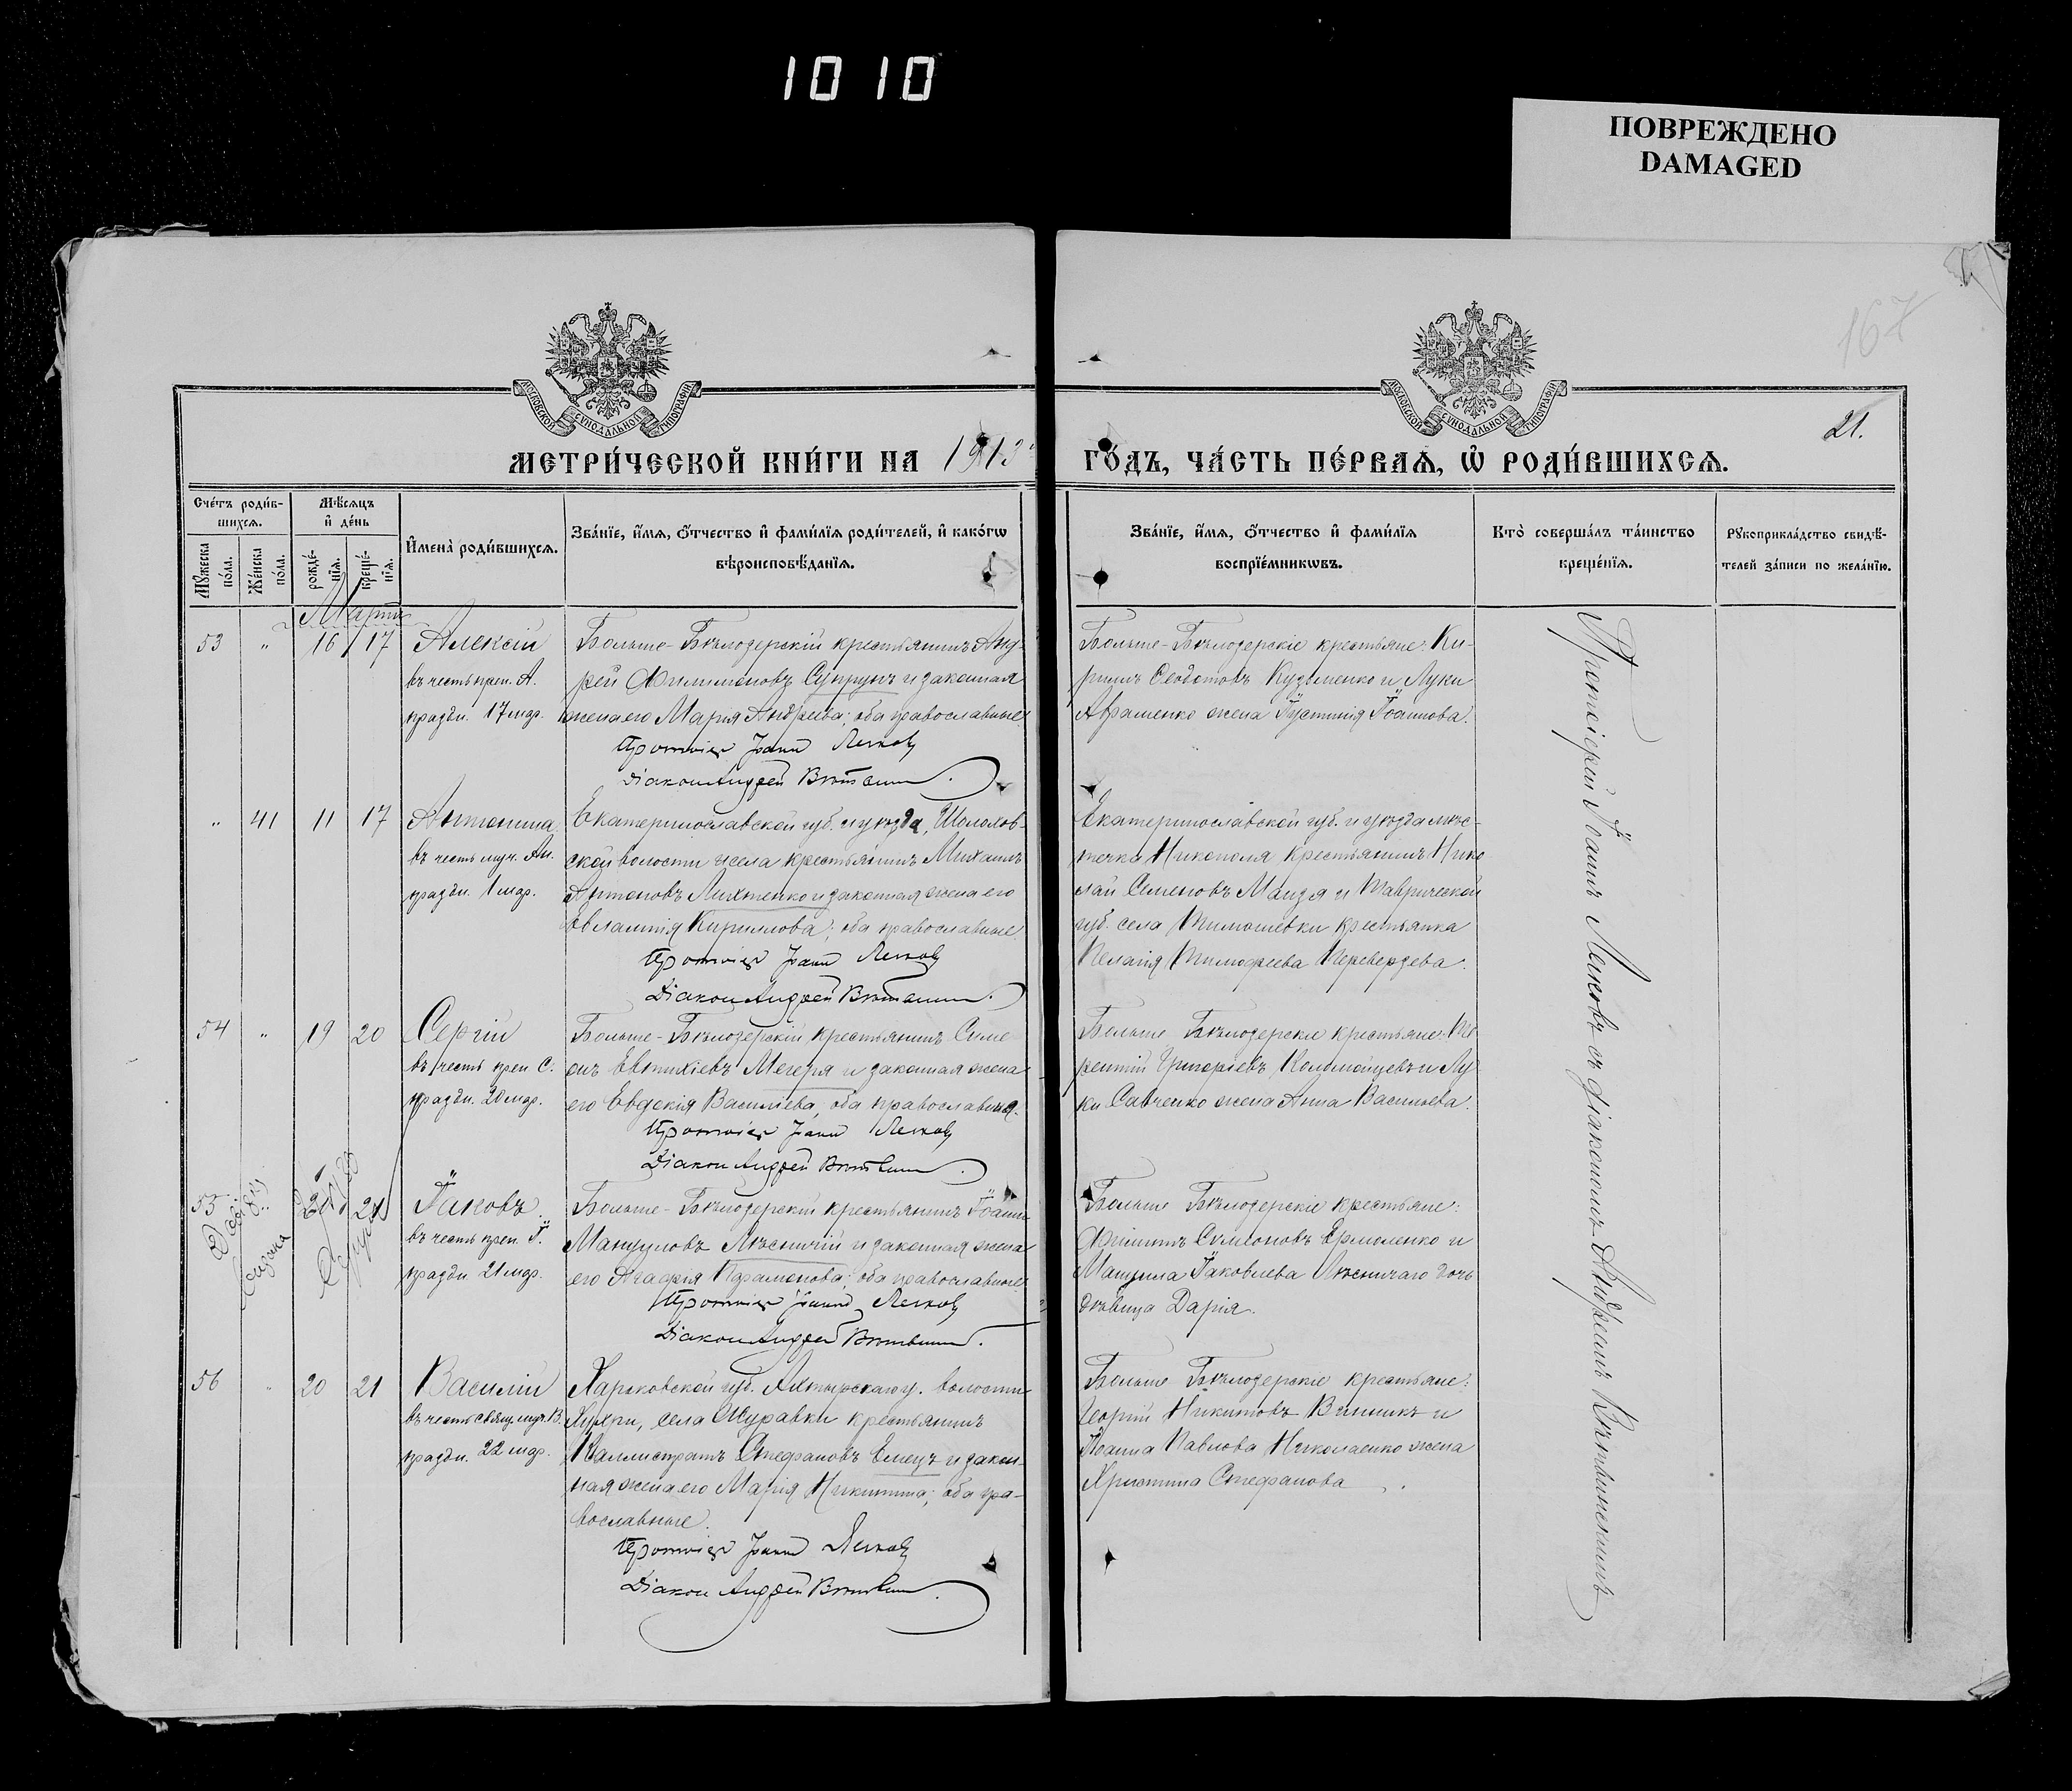 1010
ПОВРЕЖДЕНО
DAMAGED
167
МОСКОВСКОЙ СѴНОДАЛЬНОЙ ТИПОГРАФІИ
МОСКОВСКОЙ СѴНОДАЛЬНОЙ ТИПОГРАФІИ
21.
МЕТРИ́ЧЕСКОЙ КНИ́ГИ НА 1913 ГО́ДЪ, ЧА́СТЬ ПЕ́РВАѦ, Ѽ РОДИ́ВШИХСѦ.
Сче́тъ роди́в-
шихсѧ.
Мꙋ́жеска по́ла.
Же́нска по́ла.
Мѣ́сѧцъ
и҆ де́нь
рожде́-
нїѧ.
креще́-
нїѧ.
И҆мена̀ роди́вшихсѧ.
Зва́нїе, и҆́мѧ, ѻ҆́тчество и҆ фами́лїѧ роди́телей, и҆ како́гѡ
вѣроисповѣ́данїѧ.
Зва́нїе, и҆́мѧ, ѻ҆́тчество и҆ фами́лїѧ
воспрїе́мникѡвъ.
Кто̀ соверша́лъ та́инство
креще́нїѧ.
Рꙋкоприкла́дство свидѣ́-
телей за́писи по жела́нїю.
Мартъ
53 " 16 17 Алексій
въ честь преп. А.
праздн. 17 мар.
Больше-Бѣлозерскій крестьянинъ Анд-
рей Филимоновъ Супрунъ и законная
жена его Марія Андреева; оба православные.
Протоіер Іоанн Легковъ
Діакон Андрей
Больше-Бѣлозерскіе крестьяне: Ки-
риллъ Ѳеодотовъ Кузьменко и Луки
Авраменко жена Іустинія Іоаннова.
" 41 11 17 Антонина
въ честь муч. Ан.
праздн. 1 мар.
Екатеринославской губ. и уѣзда, Шолохов-
ской волости и села крестьянинъ Михаилъ
Антоновъ Лихтенко и законная жена его
Евлампія Кириллова; оба православные.
Протоіер Іоанн Легковъ
Діакон Андрей
Екатеринославской губ. и уѣзда мѣс-
течка Никополя крестьянинъ Нико-
лай Семеновъ Мандзя и Таврической
губ. села Тимошевки крестьянка
Пелагія Тимофеева
54 " 19 20 Сергій
въ честь преп. С.
праздн. 20 мар.
Больше-Бѣлозерскій крестьянинъ Симе-
онъ Евтихіевъ Мегеря и законная жена
его Евдокія Василіева, оба православныя.
Протоіер Іоанн Легковъ
Діакон Андрей
Больше Бѣлозерскіе крестьяне:
Григоріевъ Коломойцевъ и Лу-
ки Савченко жена Анна Васильева.
55 " 20 21 Іаковъ
въ честь преп. І.
праздн. 21 мар.
Больше-Бѣлозерскій крестьянинъ Іоаннъ
Мануиловъ Лѣсничій и законная жена
его Агафія Парамонова; оба православные.
Протоіер Іоанн Легковъ
Діакон Андрей
Больше Бѣлозерскіе крестьяне:
Филиппъ Симеоновъ Ермоленко и
Мануила Іаковлева Лѣсничаго дочь
дѣвица Дарія.
56 " 20 21 Василій
въ честь свящ. муч. В.
праздн. 22 мар.
Харьковской губ. Ахтырскаго у. волости
Хухри, села Журавки крестьянинъ
Каллистратъ Стефановъ Емецъ и закон-
ная жена его Марія Никитина; оба пра-
вославные.
Протоіер Іоанн Легковъ
Діакон Андрей
Больше Бѣлозерскіе крестьяне:
Георгій Никитовъ Винникъ и
Іоанна Павлова Николаенко жена
Христина Стефанова.
Протоіерей Іоаннъ Легковъ съ діакономъ Андреемъ